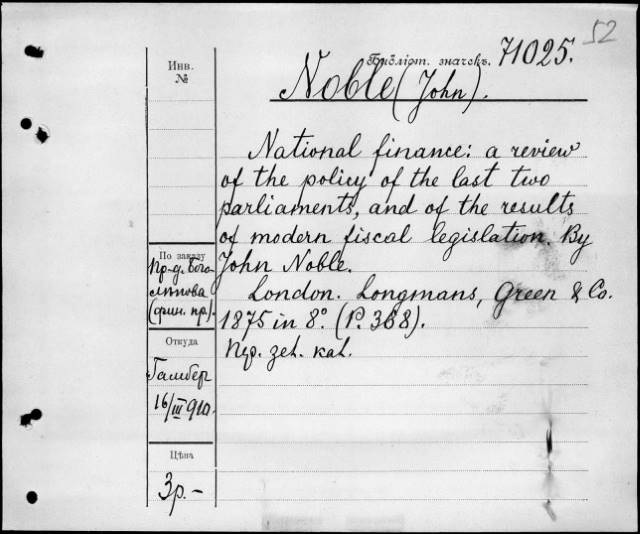 52
Библіот. значекъ. 71025.
Инв.
№
Noble (John).
National finance: a review
of the policy of the last two
parliaments, and of the results
of modern fiscal legislation. By
John Noble.
London. Longmans, Green & Co.
1875 in 8°. (P. 368).
По заказу
Пр-д. Бого-
лѣпова
(фин. пр.).
Откуда
16/III 910.
Цѣна
3р.-